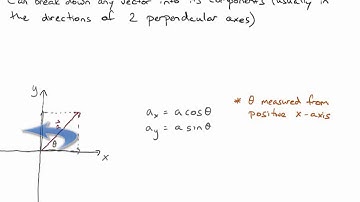 Can break down any vector into its components (usually in
the directions of 2 perpendicular axes)
y
a
θ
x
aₓ = a cosθ
a_y = a sinθ
* θ measured from
positive x-axis